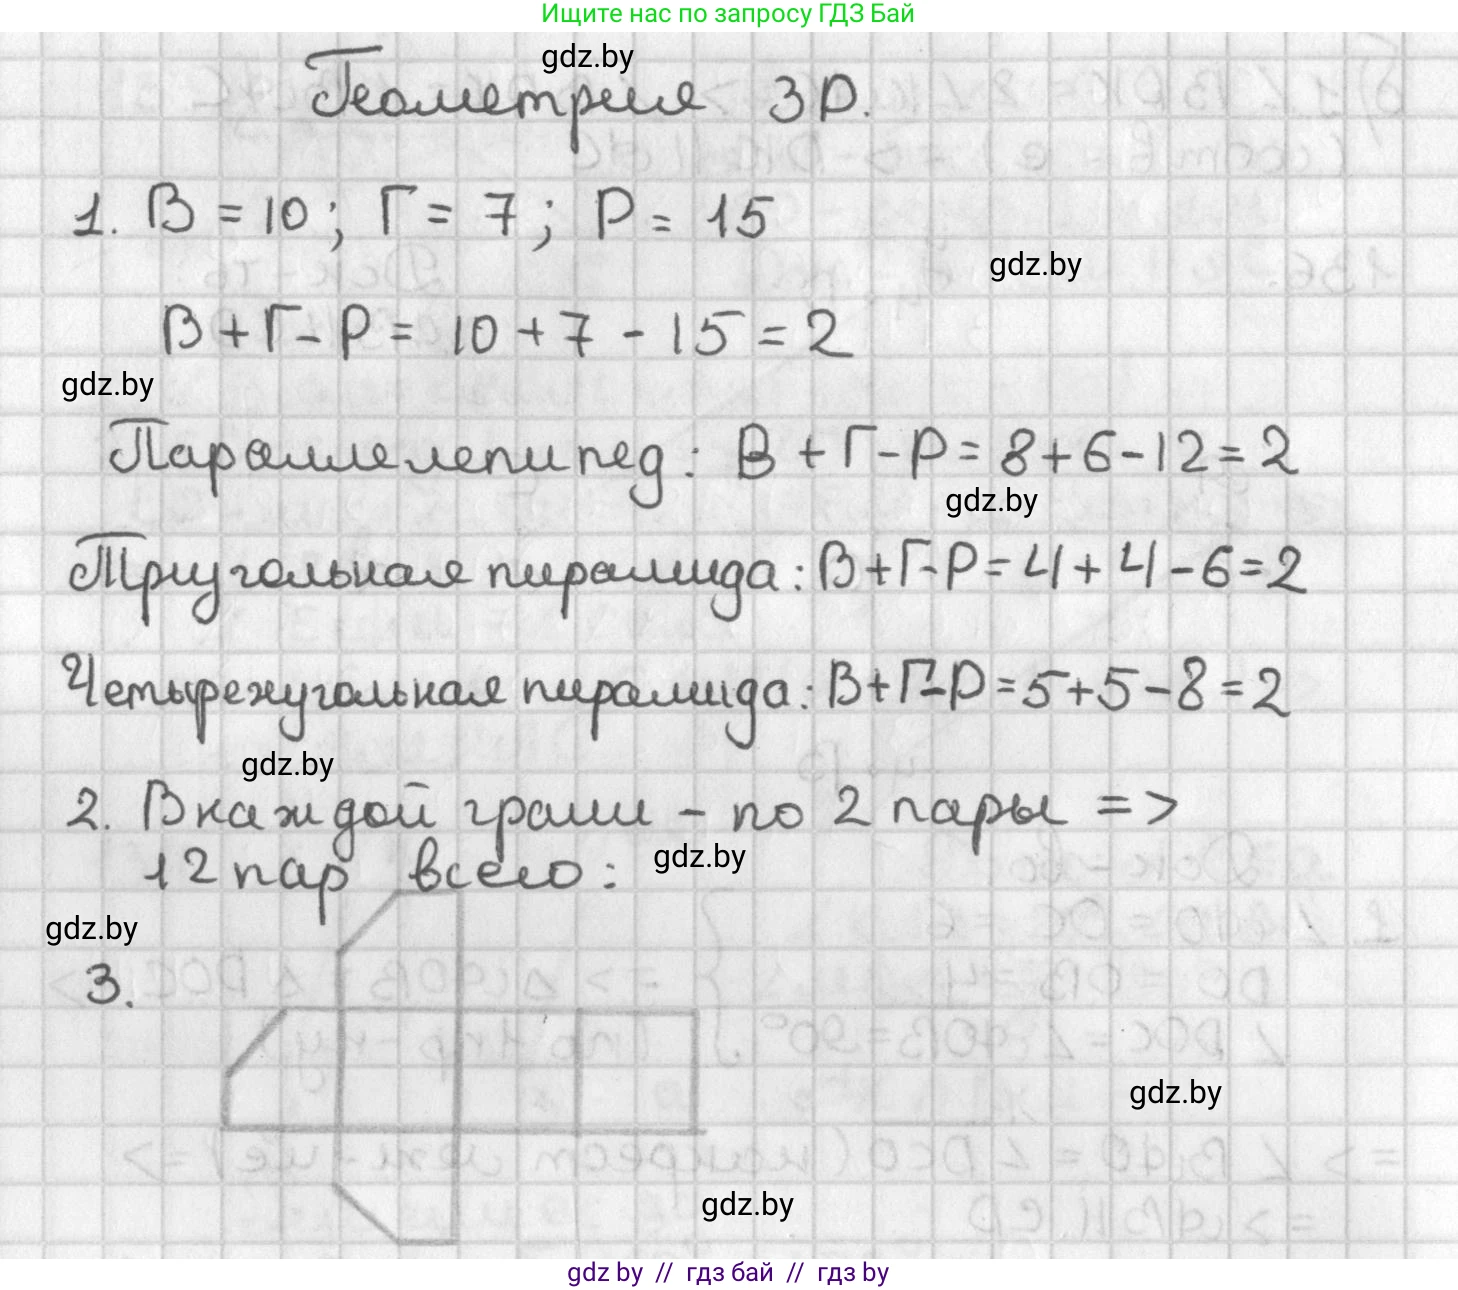 Ищите нас по запросу ГДЗ Бай
gdz.by
Геометрия 3D.
1. В = 10; Г = 7; Р = 15
gdz.by
В + Г - Р = 10 + 7 - 15 = 2
gdz.by
Параллелепипед: В + Г - Р = 8 + 6 - 12 = 2
gdz.by
Триугольная пирамида: В + Г - Р = 4 + 4 - 6 = 2
Четырехугольная пирамида: В + Г - Р = 5 + 5 - 8 = 2
gdz.by
2. В каждой грани - по 2 пары =>
12 пар всего:
gdz.by
gdz.by
3.
gdz.by
gdz.by
gdz by // гдз бай // гдз by